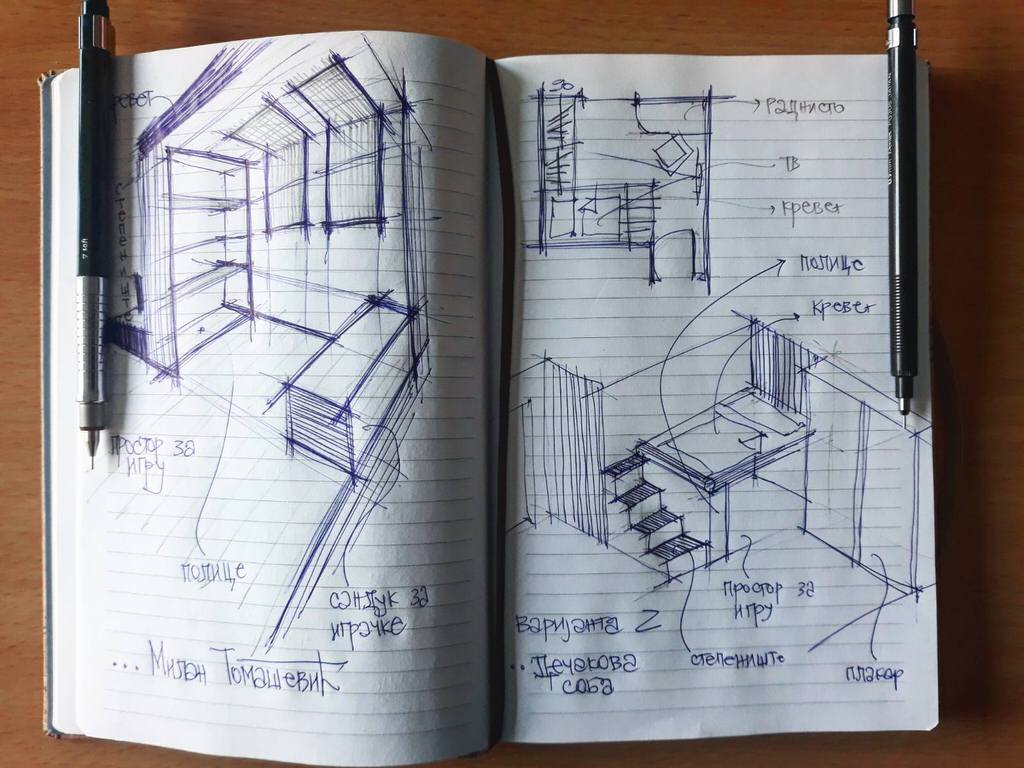 кревет
степениште
простор за
игру
полице
сандук за
играчке
... Милан Томашевић
90
радн исто
ТВ
кревет
полице
кревет
простор за
игру
Варијанта 2
степениште
плакар
.. Дечакова
соба